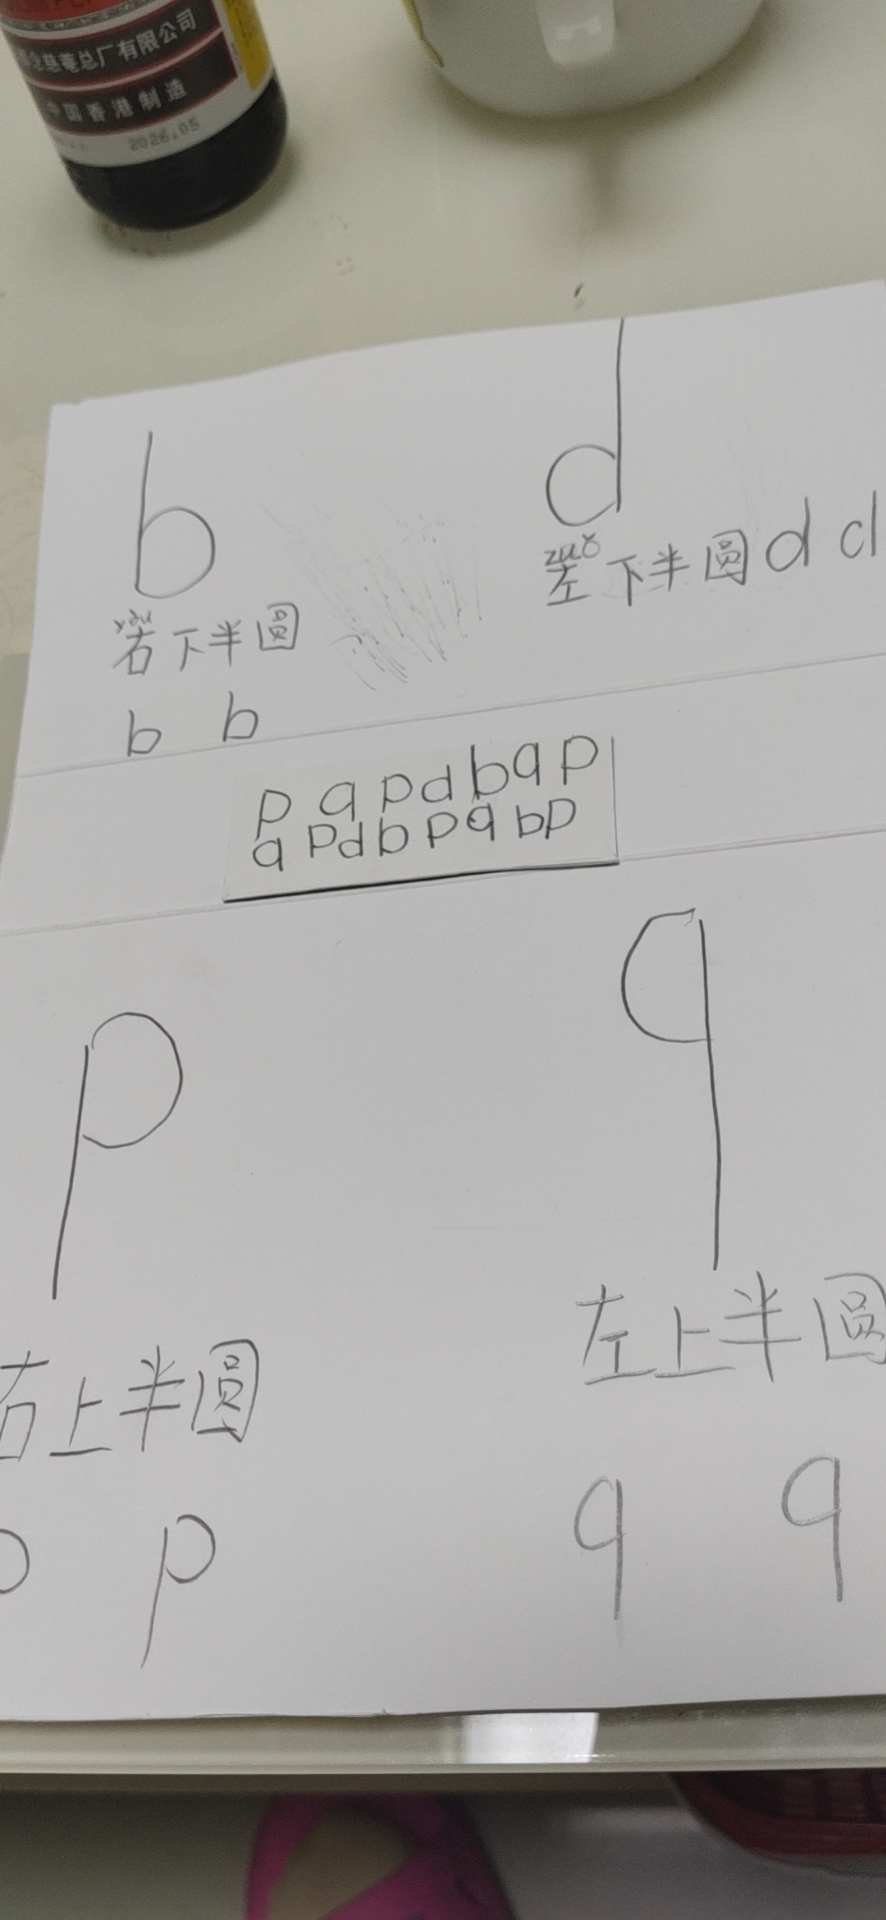 念慈菴总厂有限公司
中国香港制造
2026.05
b
d
yòu
右下半圆
zuǒ
左下半圆 d d
b b
p q p d b q p
q p d b p q b p
p
q
右上半圆
左上半圆
p p
q q